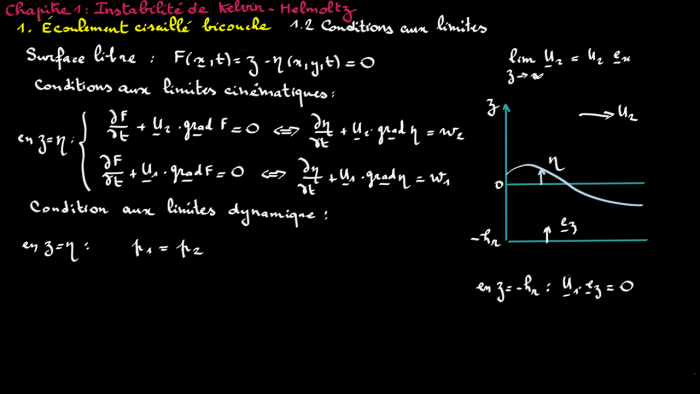 Chapitre 1: Instabilité de Kelvin-Helmoltz
1. Écoulement cisaillé bicouche 1.2 Conditions aux limites
Surface libre : F(x,t) = z - η(x,y,t) = 0
Conditions aux limites cinématiques :
en z=η : { ∂F/∂t + U₂ · grad F = 0 ⇔ ∂η/∂t + U₂ · grad η = w₂
∂F/∂t + U₁ · grad F = 0 ⇔ ∂η/∂t + U₁ · grad η = w₁
Condition aux limites dynamique :
en z=η : p₁ = p₂
lim U₂ = U₂ e_x
z→∞
z
→ U₂
η
0
e_z
-h₁
en z=-h₁ : U₁ · e_z = 0